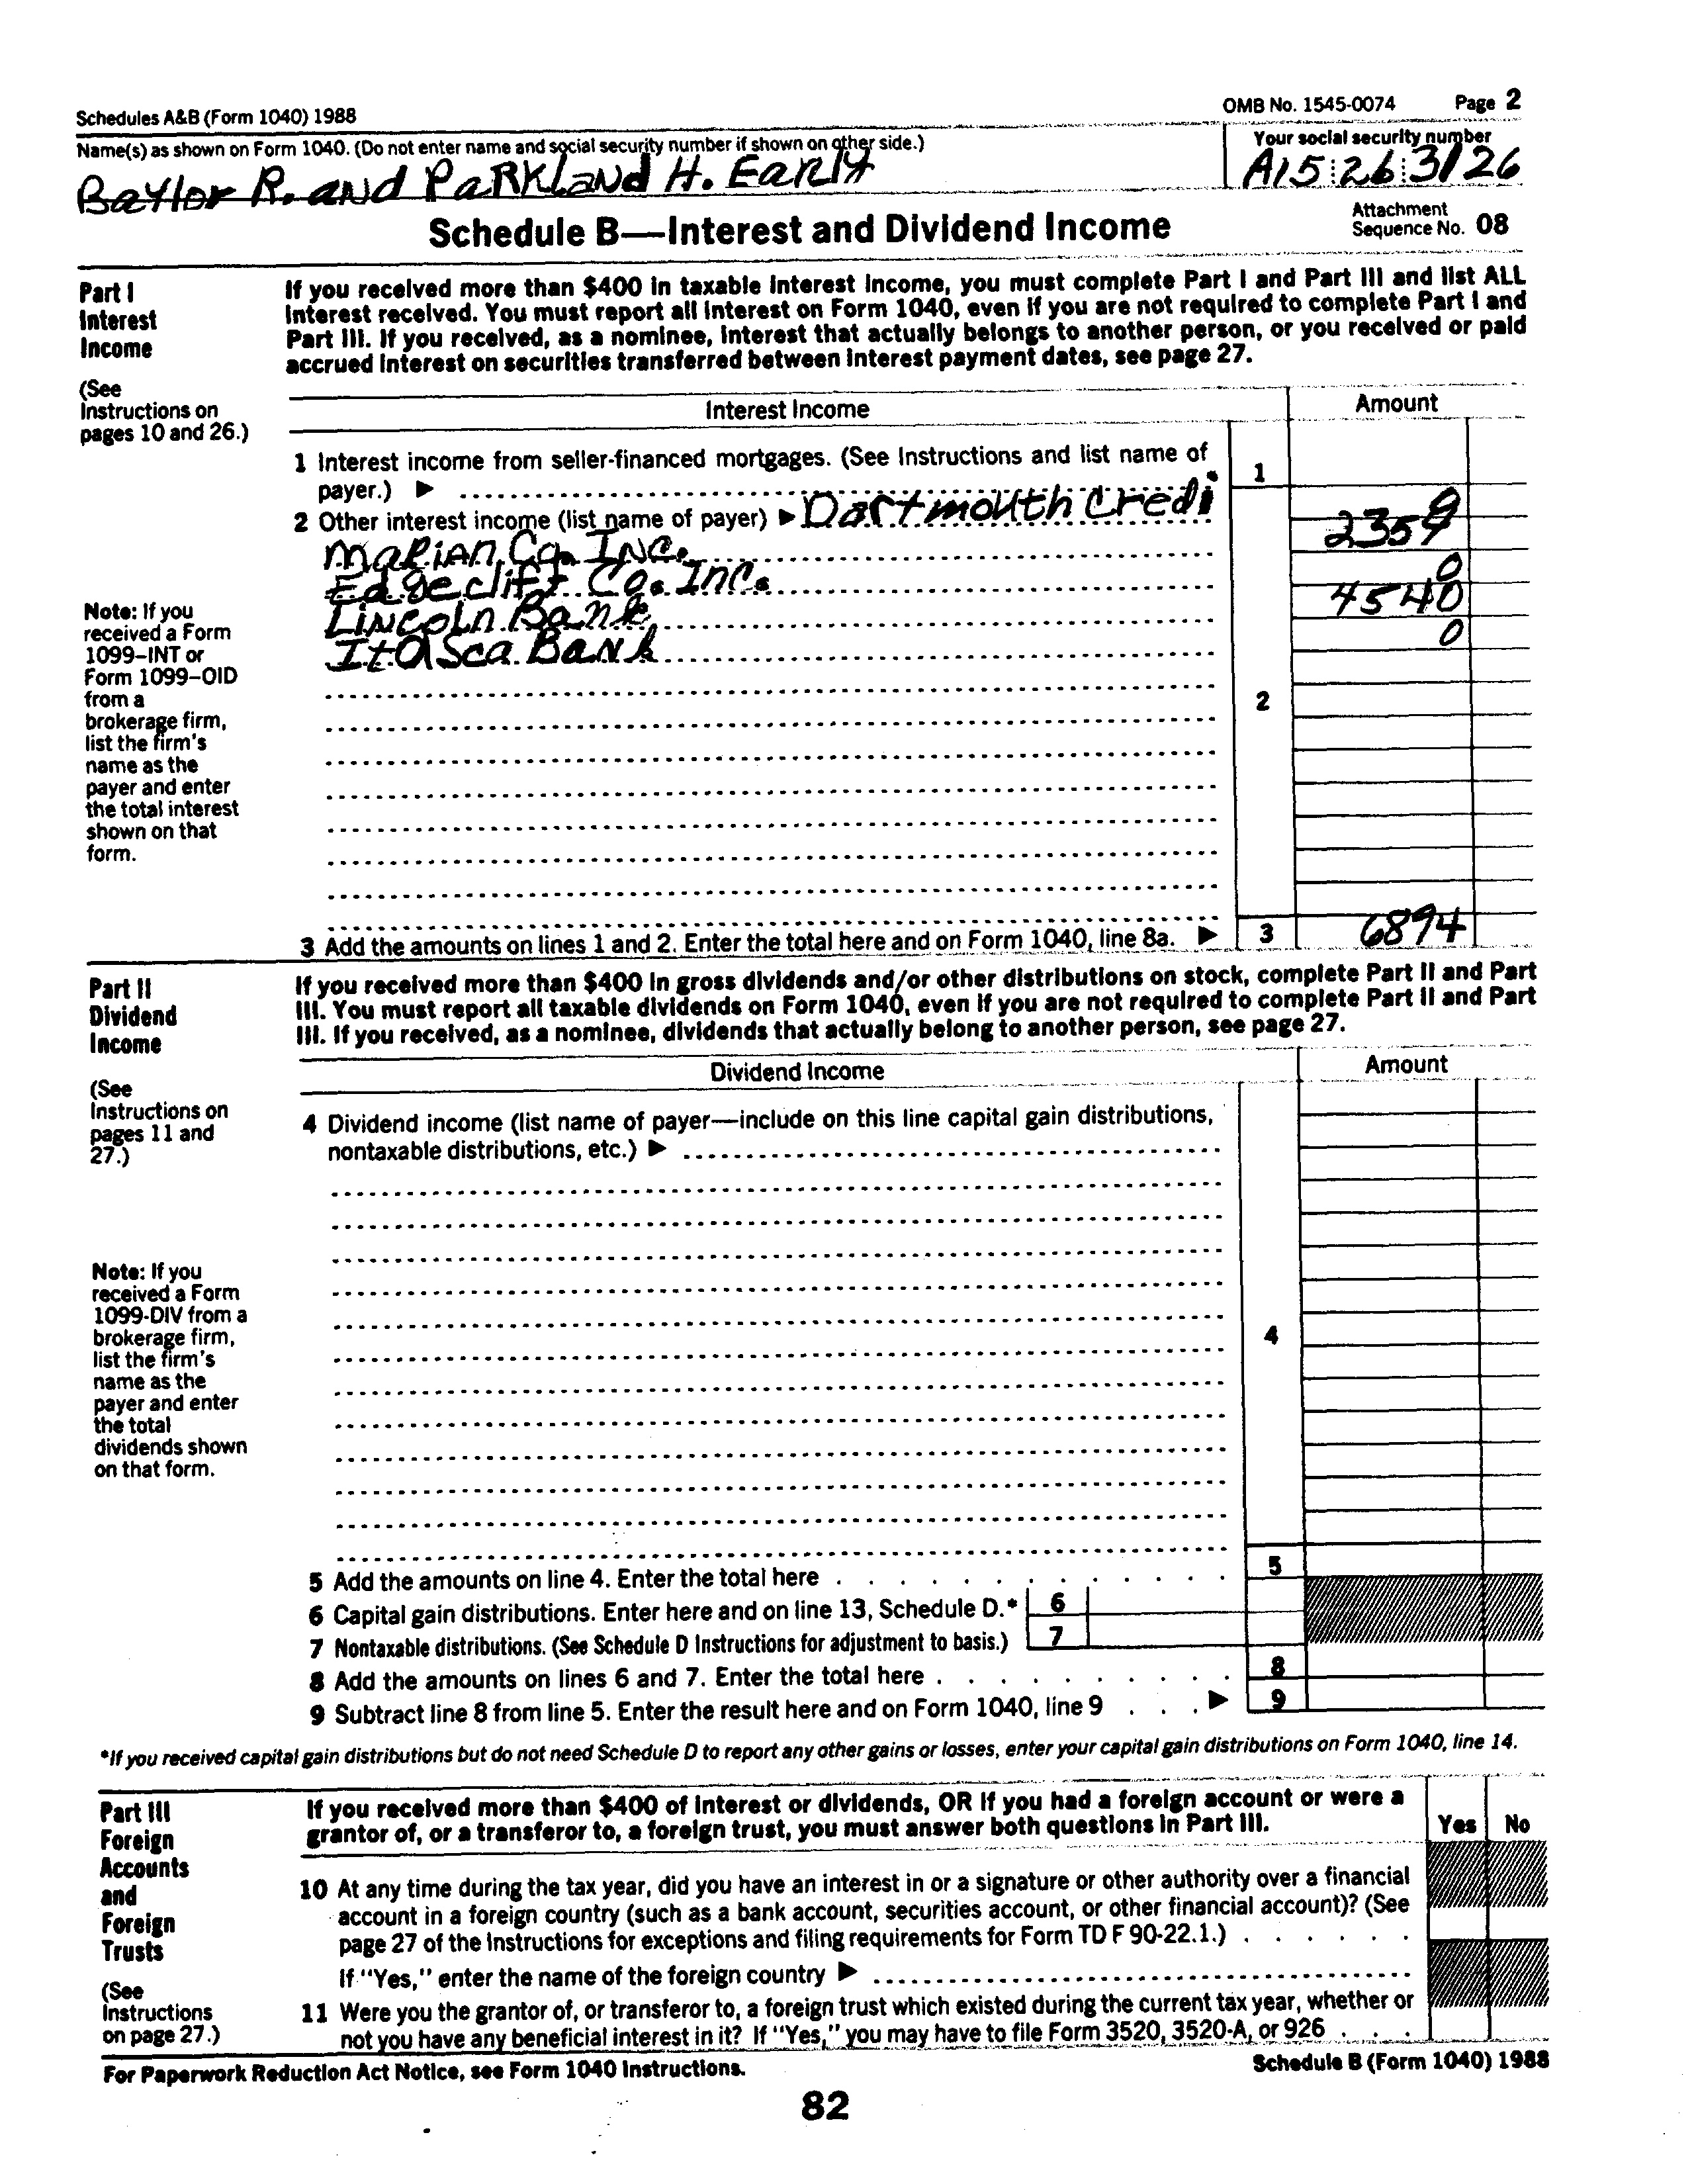 Schedules A&B (Form 1040) 1988 OMB No. 1545-0074 Page 2
Name(s) as shown on Form 1040. (Do not enter name and social security number if shown on other side.) Your social security number
Baylor R. and Parkland H. Early A15 26 3126
Schedule B—Interest and Dividend Income
Attachment
Sequence No. 08
Part I
Interest
Income
(See
Instructions on
pages 10 and 26.)
If you received more than $400 in taxable interest income, you must complete Part I and Part III and list ALL
interest received. You must report all interest on Form 1040, even if you are not required to complete Part I and
Part III. If you received, as a nominee, interest that actually belongs to another person, or you received or paid
accrued interest on securities transferred between interest payment dates, see page 27.
Interest Income Amount
1 Interest income from seller-financed mortgages. (See Instructions and list name of
payer.) ▶ 1
2 Other interest income (list name of payer) ▶ Dartmouth Credi
Marian Co. Inc. 2354
Edgeclift Co. Inc. 0
Lincoln Bank 4540
Itasca Bank 0
2
Note: If you
received a Form
1099–INT or
Form 1099–OID
from a
brokerage firm,
list the firm's
name as the
payer and enter
the total interest
shown on that
form.
3 Add the amounts on lines 1 and 2. Enter the total here and on Form 1040, line 8a. ▶ 3 6894
Part II
Dividend
Income
(See
Instructions on
pages 11 and
27.)
If you received more than $400 in gross dividends and/or other distributions on stock, complete Part II and Part
III. You must report all taxable dividends on Form 1040, even if you are not required to complete Part II and Part
III. If you received, as a nominee, dividends that actually belong to another person, see page 27.
Dividend Income Amount
4 Dividend income (list name of payer—include on this line capital gain distributions,
nontaxable distributions, etc.) ▶
4
Note: If you
received a Form
1099-DIV from a
brokerage firm,
list the firm's
name as the
payer and enter
the total
dividends shown
on that form.
5 Add the amounts on line 4. Enter the total here 5
6 Capital gain distributions. Enter here and on line 13, Schedule D.* 6
7 Nontaxable distributions. (See Schedule D Instructions for adjustment to basis.) 7
8 Add the amounts on lines 6 and 7. Enter the total here 8
9 Subtract line 8 from line 5. Enter the result here and on Form 1040, line 9 ▶ 9
*If you received capital gain distributions but do not need Schedule D to report any other gains or losses, enter your capital gain distributions on Form 1040, line 14.
Part III
Foreign
Accounts
and
Foreign
Trusts
(See
Instructions
on page 27.)
If you received more than $400 of interest or dividends, OR if you had a foreign account or were a
grantor of, or a transferor to, a foreign trust, you must answer both questions in Part III. Yes No
10 At any time during the tax year, did you have an interest in or a signature or other authority over a financial
account in a foreign country (such as a bank account, securities account, or other financial account)? (See
page 27 of the Instructions for exceptions and filing requirements for Form TD F 90-22.1.)
If "Yes," enter the name of the foreign country ▶
11 Were you the grantor of, or transferor to, a foreign trust which existed during the current tax year, whether or
not you have any beneficial interest in it? If "Yes," you may have to file Form 3520, 3520-A, or 926
For Paperwork Reduction Act Notice, see Form 1040 Instructions. Schedule B (Form 1040) 1988
82